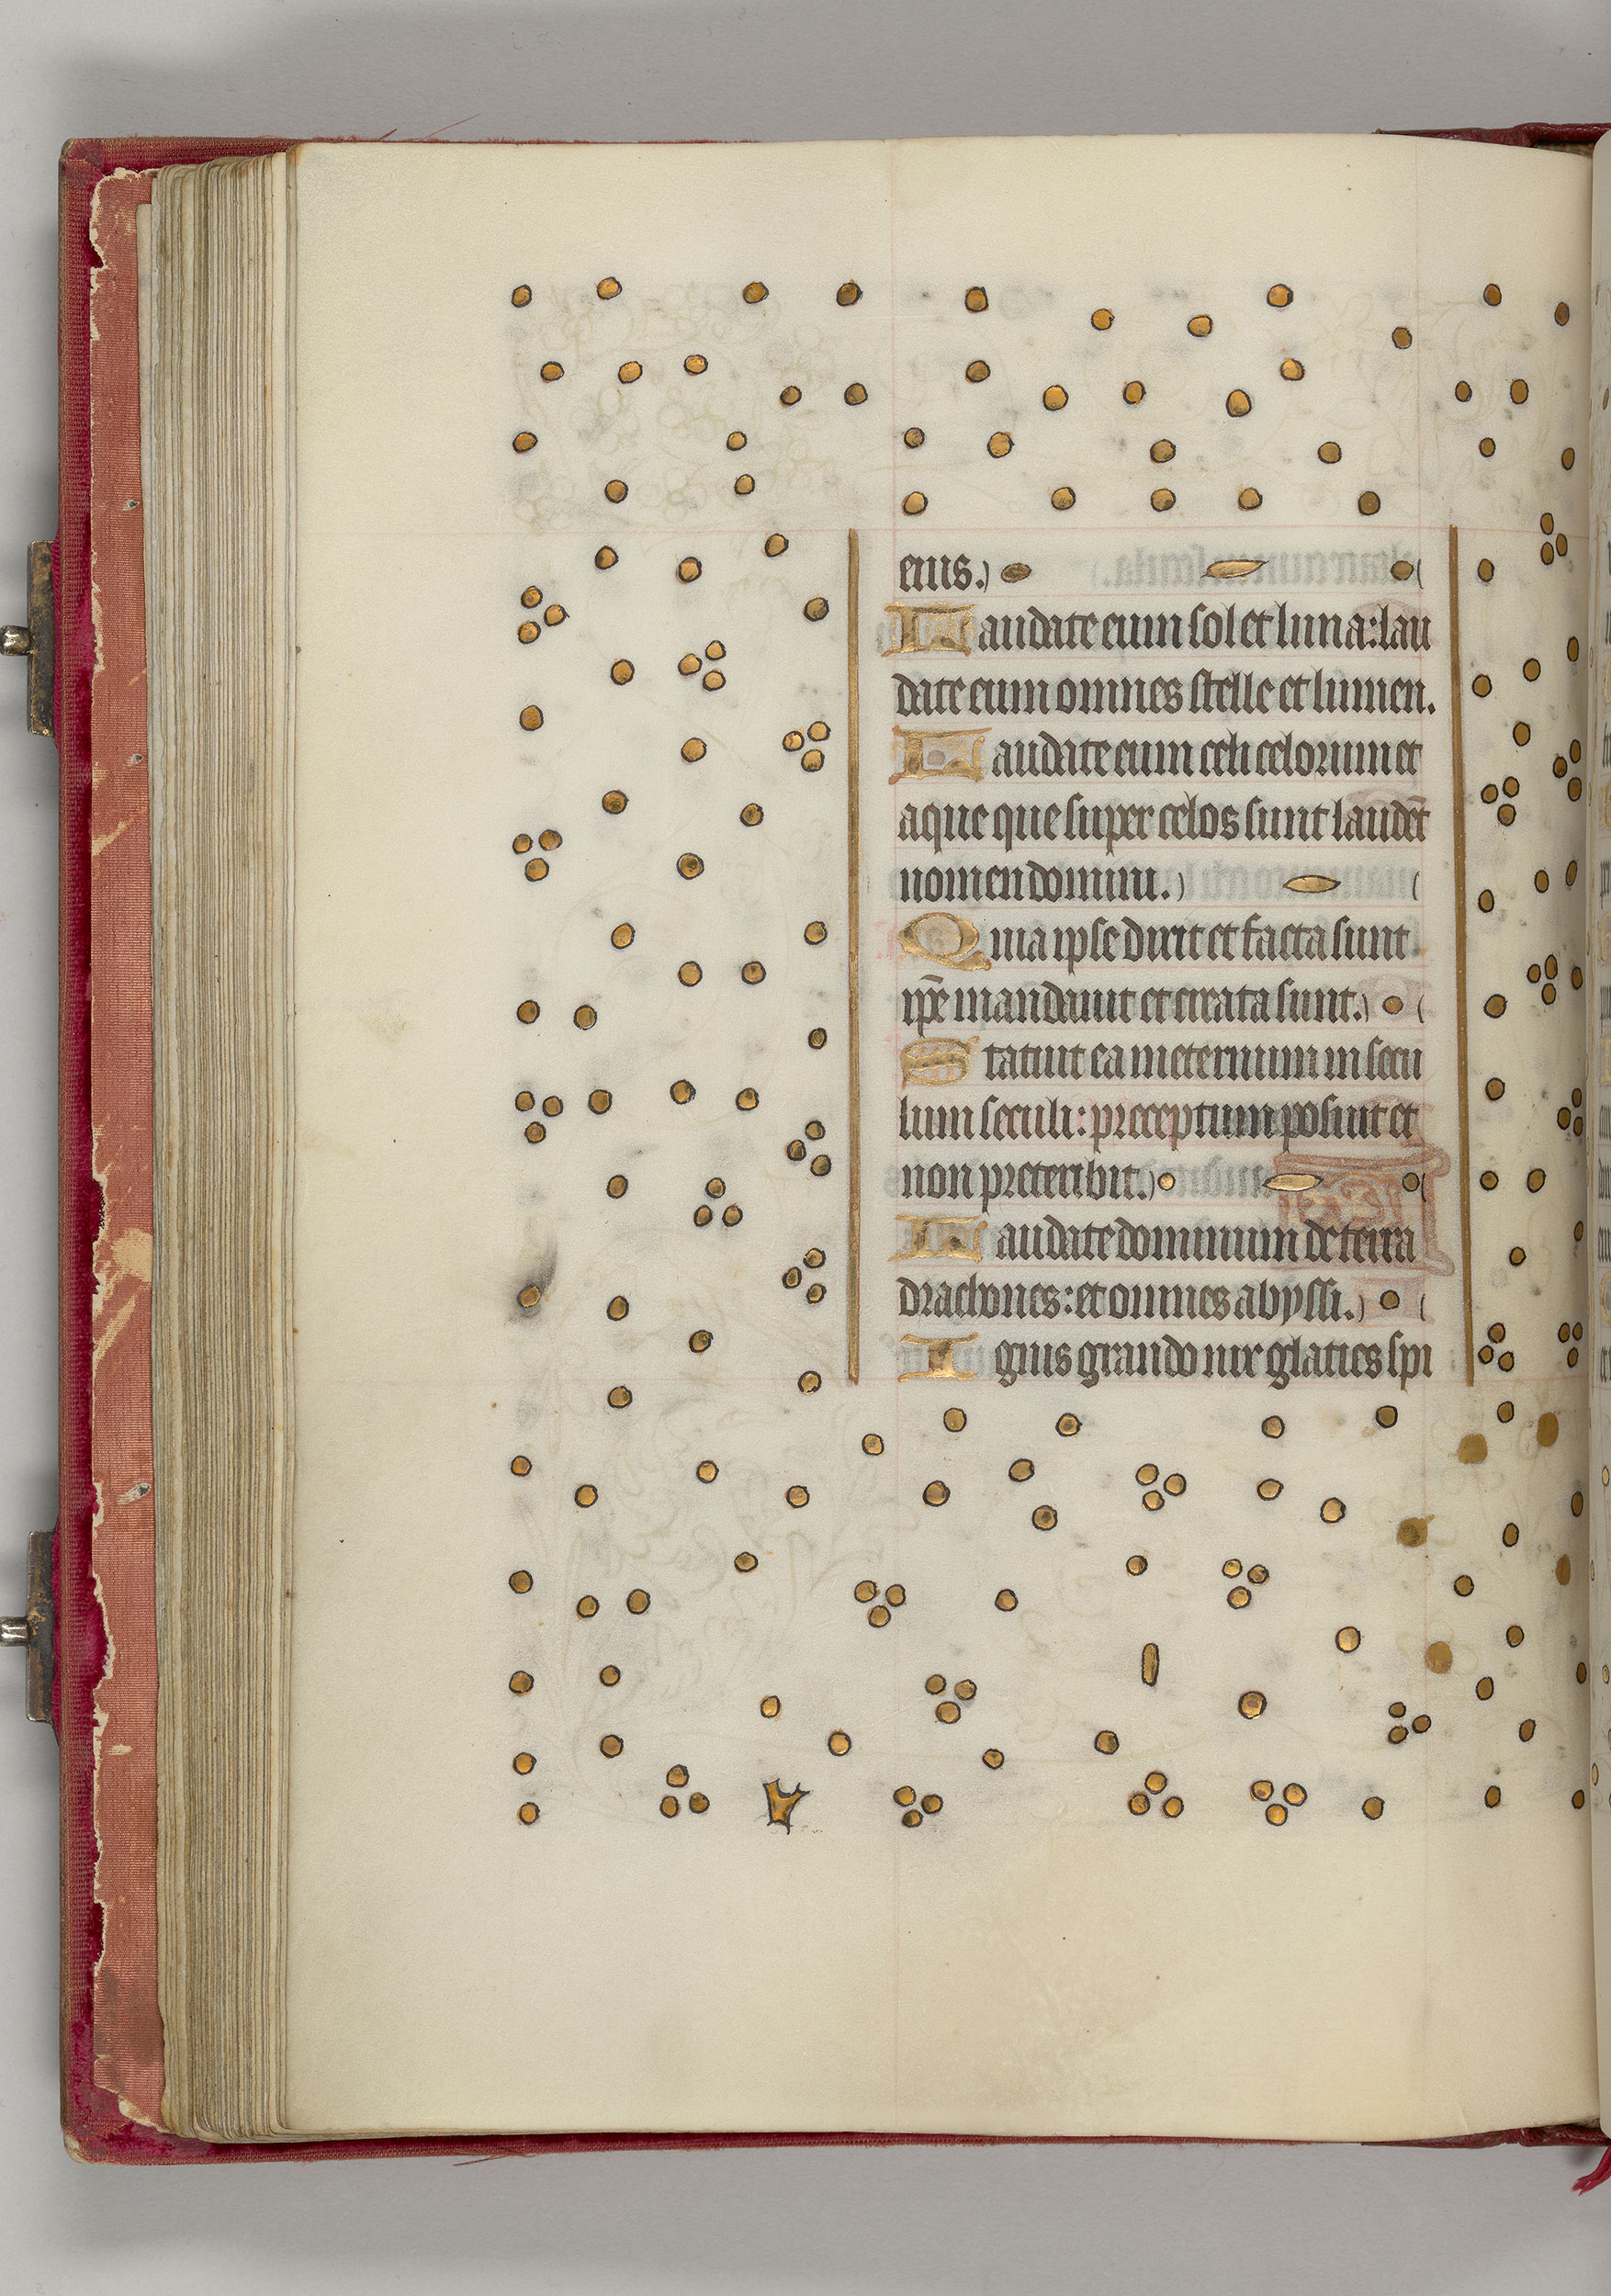 eius.
Laudate eum sol et luna: lau
date eum omnes stelle et lumen.
Laudate eum celi celorum et
aque que super celos sunt laudēt
nomen domini.
Quia ipse dixit et facta sunt
ip̄e mandauit et creata sunt.
Statuit ea in eternum in secu
lum seculi: preceptum posuit et
non preteribit.
Laudate dominum de terra
drachones: et omnes abyssi.
Ignis grando nix glaties spi